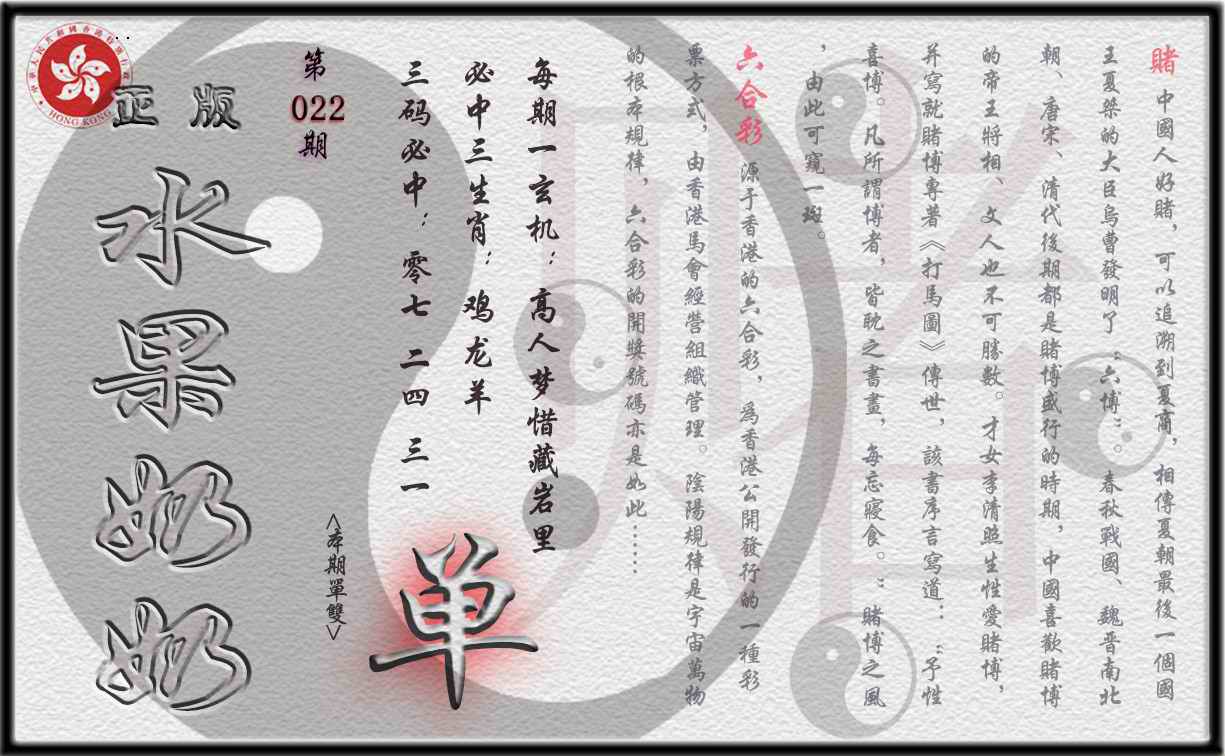 賭 中國人好賭，可以追溯到夏商，相傳夏朝最後一個國
王夏桀的大臣烏曹發明了“六博”。春秋戰國、魏晋南北
朝、唐宋、清代後期都是賭博盛行的時期，中國喜歡賭博
的帝王將相、文人也不可勝數。才女李清照生性愛賭博，
并寫就賭博專著《打馬圖》傳世，該書序言寫道：“予性
喜博。凡所謂博者，皆耽之書畫，每忘寢食。”賭博之風
，由此可窺一斑。
六合彩 源于香港的六合彩，爲香港公開發行的一種彩
票方式，由香港馬會經營組織管理。陰陽規律是宇宙萬物
的根本規律，六合彩的開獎號碼亦是如此……
每期一玄机：高人梦惜藏岩里
必中三生肖：鸡龙羊
三码必中：零七 二四 三一
单
<本期單雙>
第
022
期
正版
水果奶奶
中華人民共和國香港特別行政區
HONG KONG